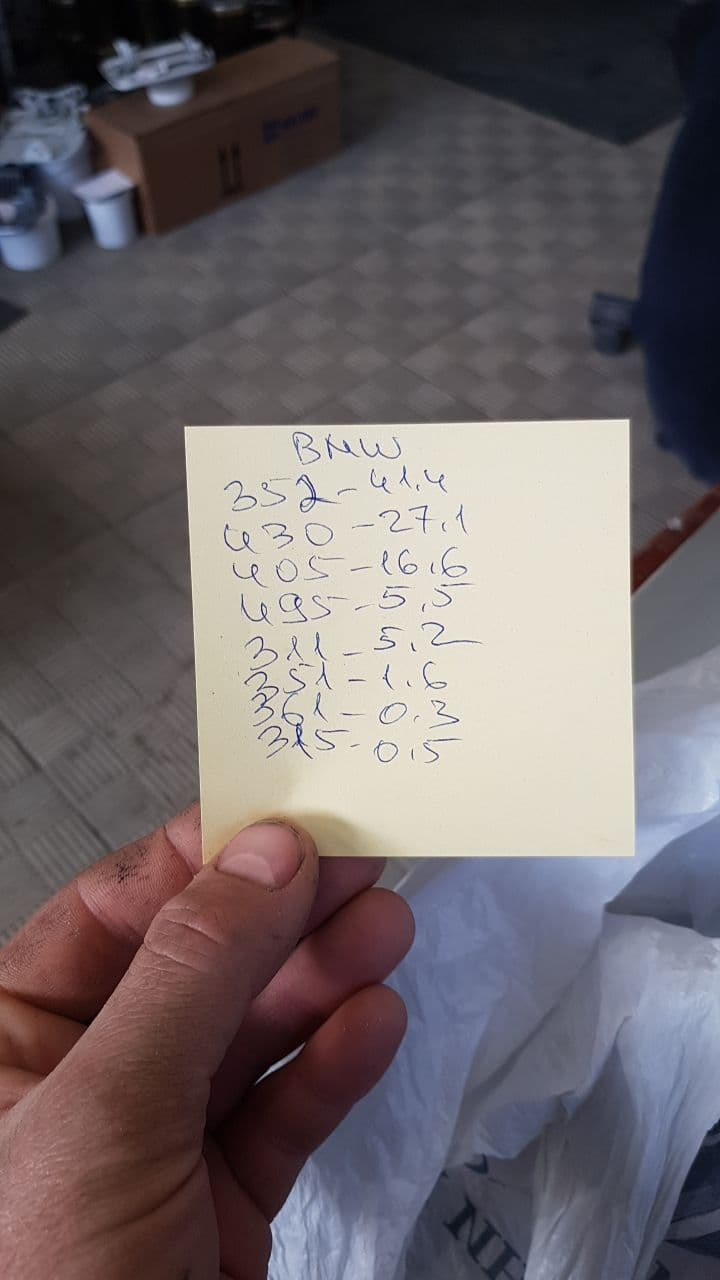 BMW
352-41.4
430-27.1
405-16.6
495-5.5
311-5.2
351-1.6
361-0.3
315-0.5
NH